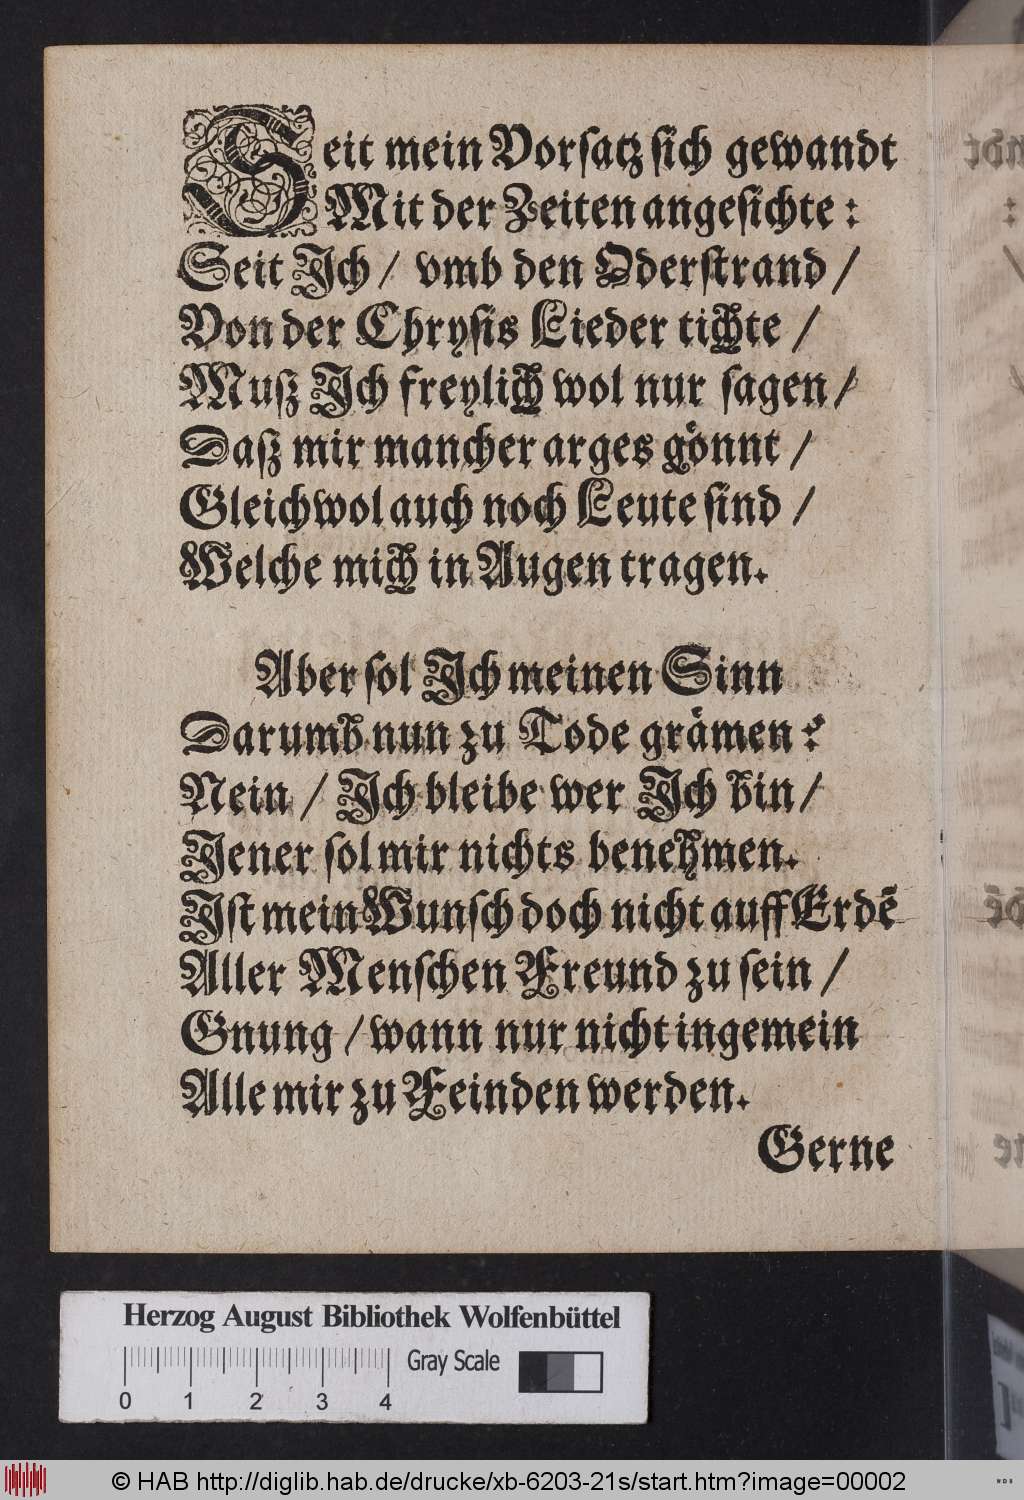 Seit mein Vorſatz ſich gewandt
Mit der Zeiten angeſichte:
Seit Ich / vmb den Oderſtrand /
Von der Chryſis Lieder tichte /
Muſz Ich freylich wol nur ſagen /
Daſz mir mancher arges goͤnnt /
Gleichwol auch noch Leute ſind /
Welche mich in Augen tragen.
Aber ſol Ich meinen Sinn
Darumb nun zu Tode graͤmen?
Nein / Ich bleibe wer Ich bin /
Jener ſol mir nichts benehmen.
Iſt mein Wunſch doch nicht auff Erdē
Aller Menſchen Freund zu ſein /
Gnung / wann nur nicht ingemein
Alle mir zu Feinden werden.
Gerne
Herzog August Bibliothek Wolfenbüttel
Gray Scale
0 1 2 3 4
© HAB http://diglib.hab.de/drucke/xb-6203-21s/start.htm?image=00002